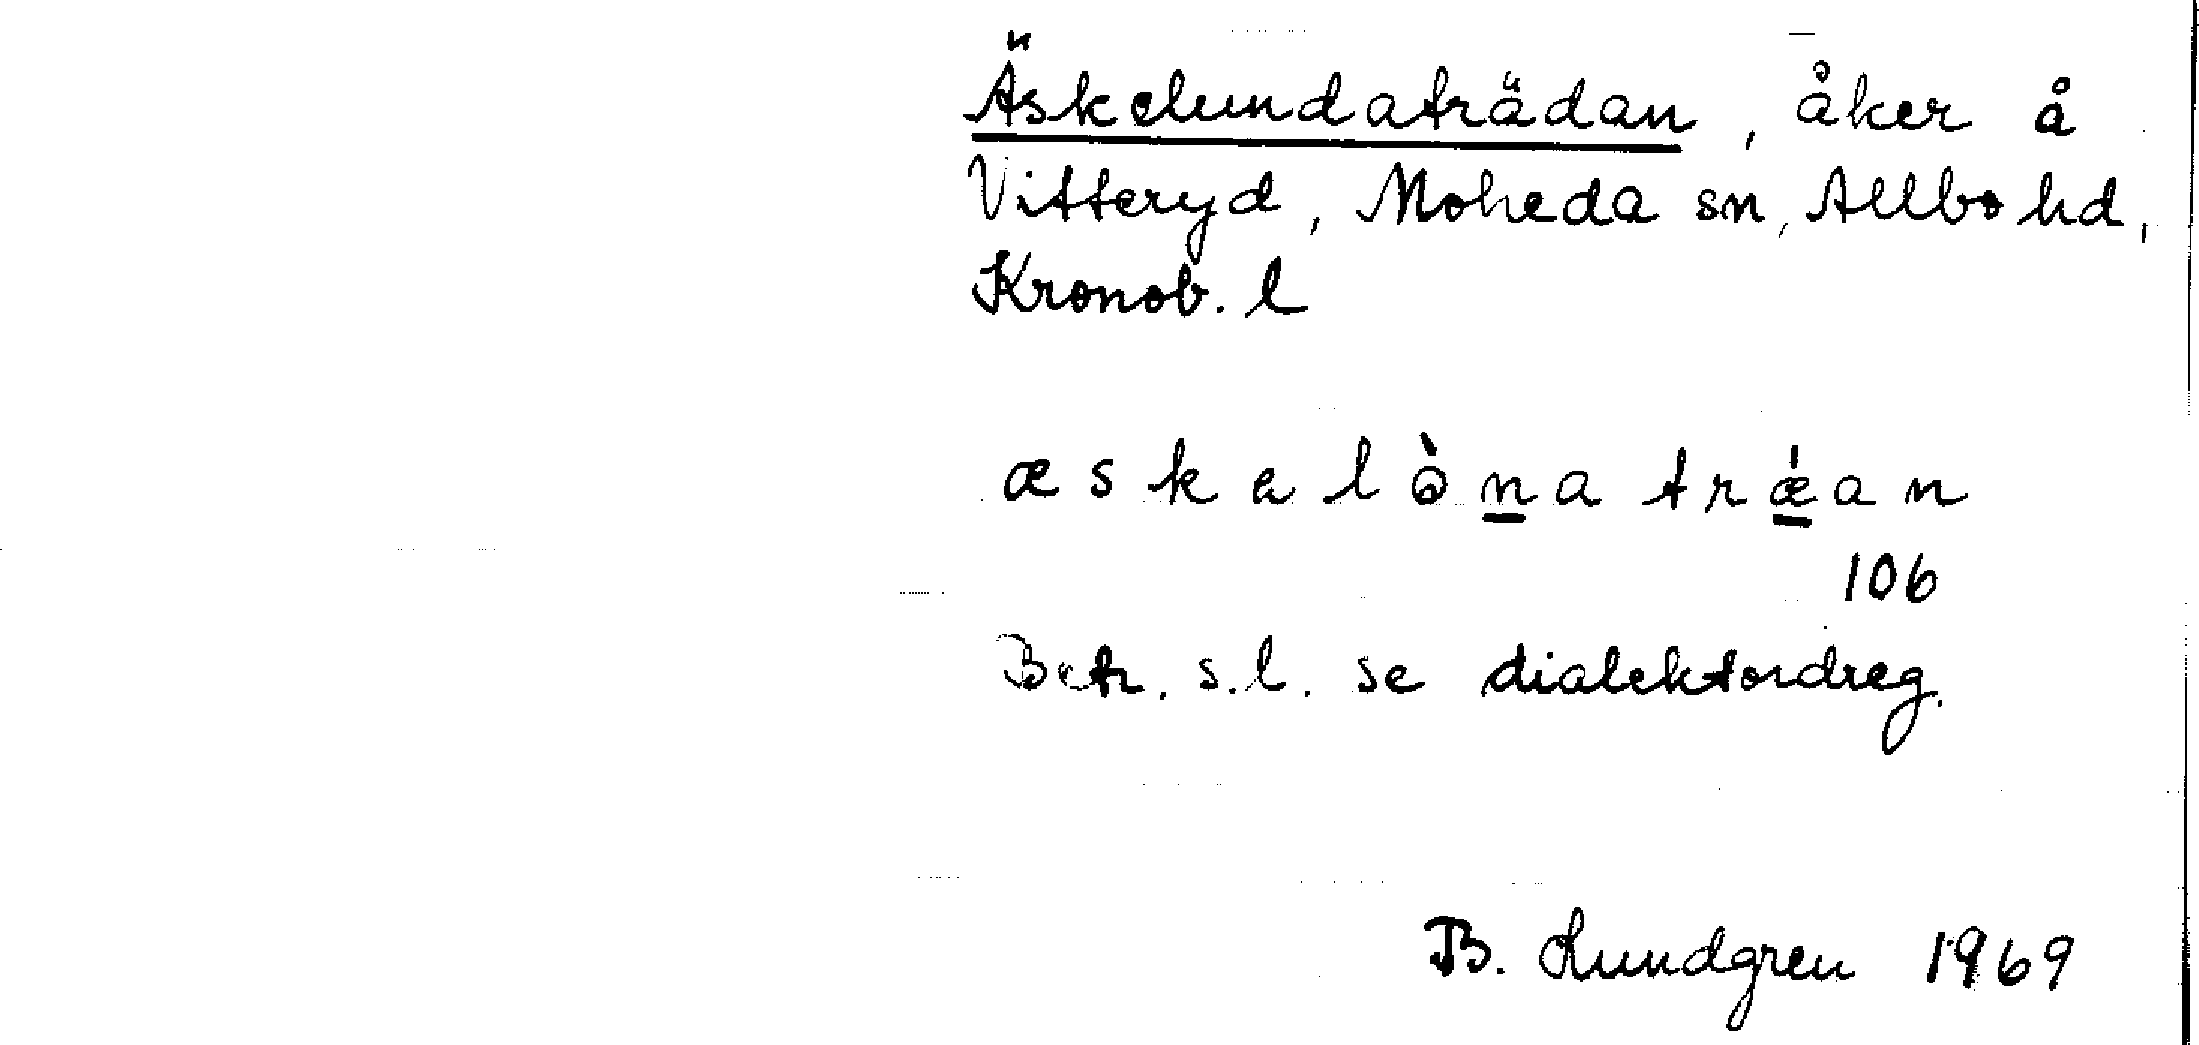 Äskelundaträdan, åker å
Vitteryd, Moheda sn, Allbo hd,
Kronob. l
æskalònatrǽan
106
Betr. s.l. se dialektordreg.
B. Lundgren 1969